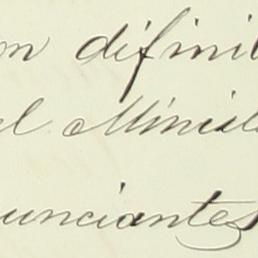 on difinit
el Minist
unciantes